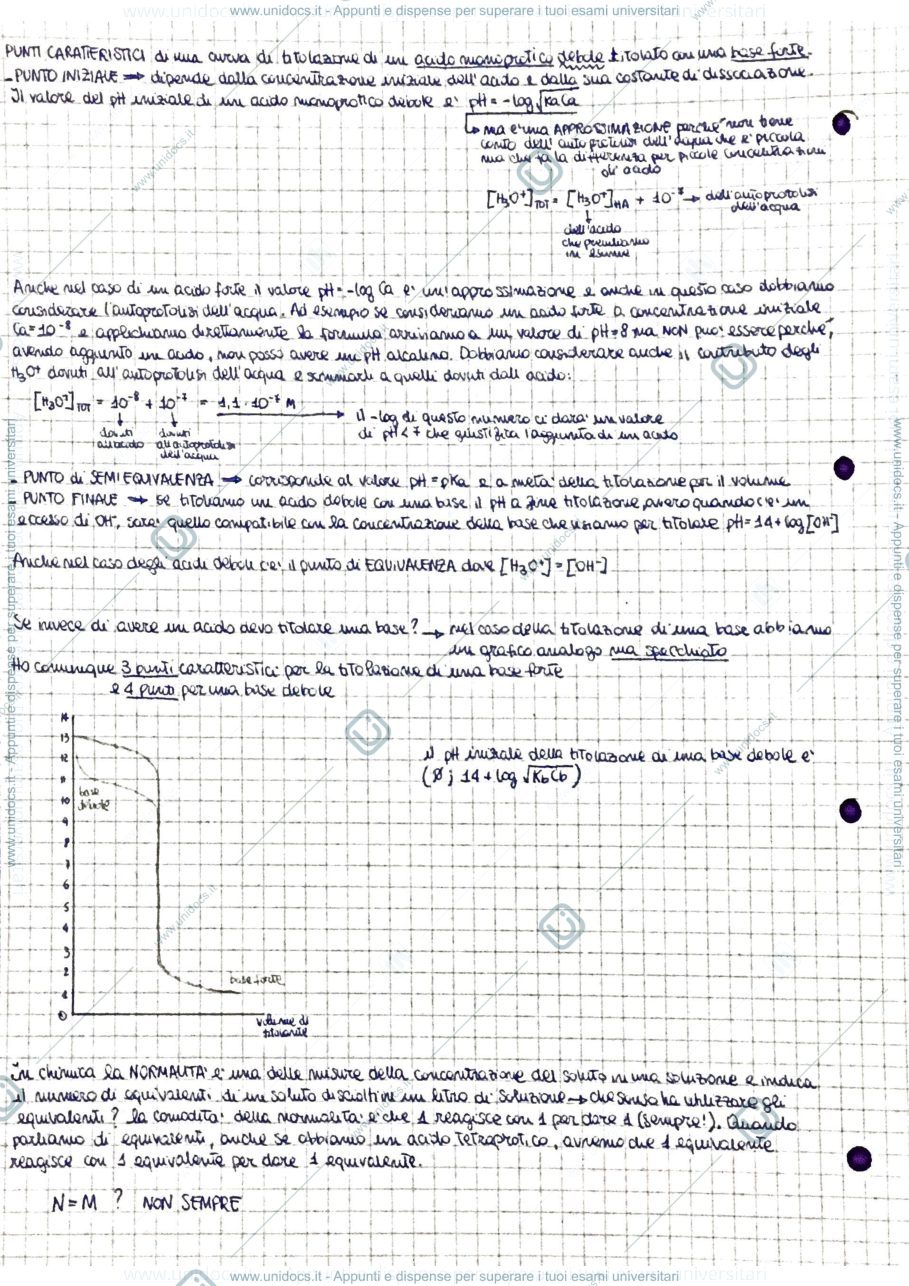 www.unidocs.it - Appunti e dispense per superare i tuoi esami universitari
PUNTI CARATTERISTICI di una curva di titolazione di un acido monoprotico debole titolato con una base forte.
- PUNTO INIZIALE → dipende dalla concentrazione iniziale dell'acido e dalla sua costante di dissociazione.
Il valore del pH iniziale di un acido monoprotico debole e' pH = -log √KaCa
↳ ma e' una APPROSSIMAZIONE perche' non tiene
conto dell'autoprotolisi dell'acqua che e' piccola
ma che fa la differenza per piccole concentrazioni
di acido
[H3O+]TOT = [H3O+]HA + 10^-7 → dell'autoprotolisi
dell'acqua
↓
dall'acido
che prendiamo
in esame
Anche nel caso di un acido forte il valore pH = -log Ca e' un'approssimazione e anche in questo caso dobbiamo
considerare l'autoprotolisi dell'acqua. Ad esempio se consideriamo un acido forte a concentrazione iniziale
Ca=10^-8 e applichiamo direttamente la formula arriviamo a un valore di pH=8 ma NON puo' essere perche',
avendo aggiunto un acido, non posso avere un pH alcalino. Dobbiamo considerare anche il contributo degli
H3O+ dovuti all'autoprotolisi dell'acqua e sommarli a quelli dovuti dall'acido:
[H3O+]TOT = 10^-8 + 10^-7 = 1,1 · 10^-7 M → il -log di questo numero ci dara' un valore
di pH < 7 che giustifica l'aggiunta di un acido
↓ ↓
dovuti dovuti
all'acido all'autoprotolisi
dell'acqua
- PUNTO di SEMIEQUIVALENZA → corrisponde al valore pH = pKa e a meta' della titolazione per il volume
- PUNTO FINALE → se titoliamo un acido debole con una base, il pH a fine titolazione, ovvero quando c'e' un
eccesso di OH-, sara' quello compatibile con la concentrazione della base che usiamo per titolare pH = 14 + log [OH-]
Anche nel caso degli acidi deboli c'e' il punto di EQUIVALENZA dove [H3O+] = [OH-]
Se invece di avere un acido devo titolare una base? → nel caso della titolazione di una base abbiamo
un grafico analogo ma specchiato
Ho comunque 3 punti caratteristici per la titolazione di una base forte
e 4 punti per una base debole
14
13
12
11
10
9
8
7
6
5
4
3
2
1
0
base
debole
base forte
volume di
titolante
il pH iniziale della titolazione di una base debole e'
(Ø; 14 + log √KbCb)
In chimica la NORMALITA' e' una delle misure della concentrazione del soluto in una soluzione e indica
il numero di equivalenti di un soluto disciolti in un litro di soluzione → che senso ha utilizzare gli
equivalenti? la comodita' della normalita' e' che 1 reagisce con 1 per dare 1 (sempre!). Quando
parliamo di equivalenti, anche se abbiamo un acido tetraprotico, avremo che 1 equivalente
reagisce con 1 equivalente per dare 1 equivalente.
N = M ? NON SEMPRE
www.unidocs.it - Appunti e dispense per superare i tuoi esami universitari